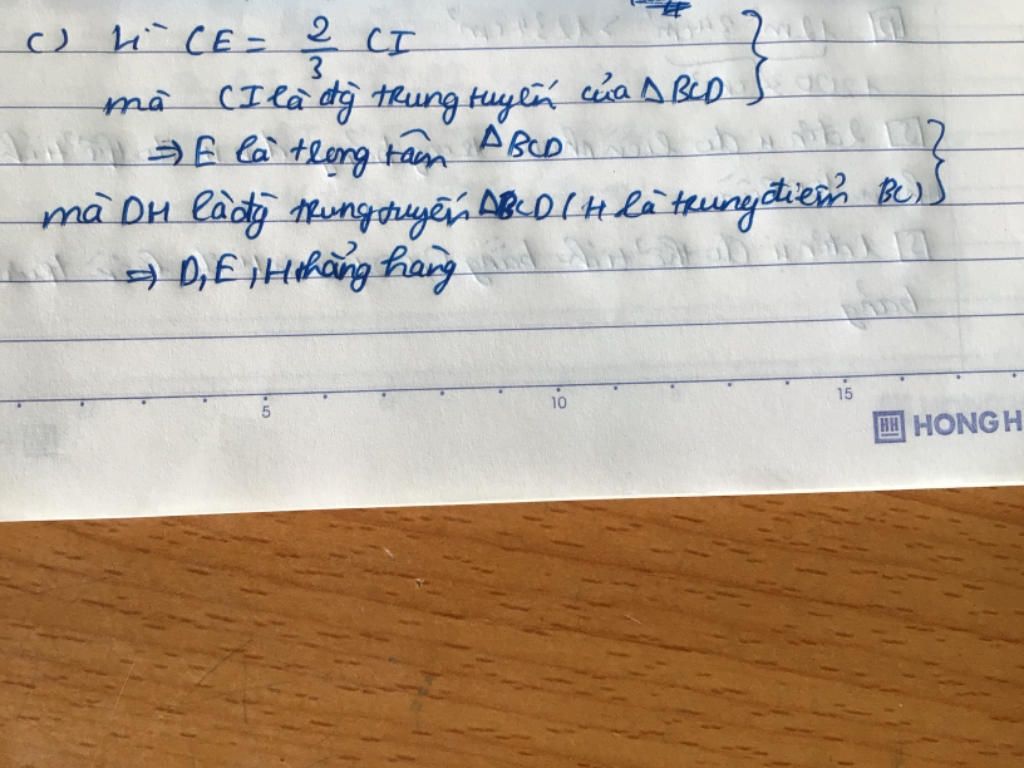 c) Vì CE = 2/3 CI
mà CI là đg trung tuyến của ΔBCD }
⇒ E là trọng tâm ΔBCD
mà DH là đg trung tuyến ΔBCD (H là trung điểm BC) }
⇒ D, E, H thẳng hàng
5 10 15
HH HONG H